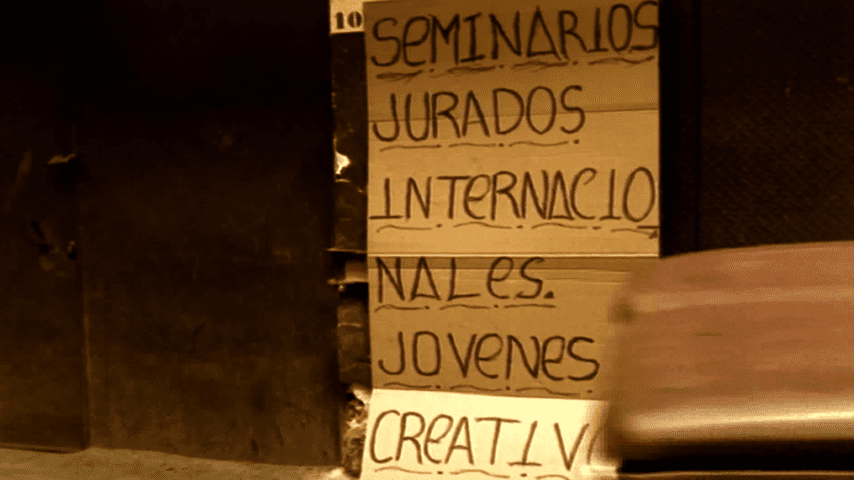 10
SeMINARIOS
JURADOS
INTeRNACIO
NALeS.
JOVeNeS
CReATIV